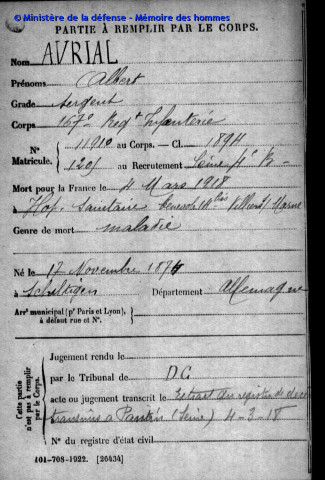 © Ministère de la défense - Mémoire des hommes
PARTIE À REMPLIR PAR LE CORPS.
Nom AVRIAL
Prénoms Albert
Grade Sergent
Corps 167e Regt Infanterie
N° Matricule. 11910 au Corps. — Cl. 1894
1201 au Recrutement Seine 4e B
Mort pour la France le 4 Mars 1918
à Hop. Sanitaire Marne
Genre de mort maladie
Né le 17 Novembre 1874
à Département Allemagne
Arrt municipal (pr Paris et Lyon), à défaut rue et N°.
Cette partie n'est pas à remplir par le Corps.
Jugement rendu le
par le Tribunal de DC
acte ou jugement transcrit le Extrait du registre de
à Pantin (Seine) 4-3-18
N° du registre d'état civil
101-708-1922. [26434]